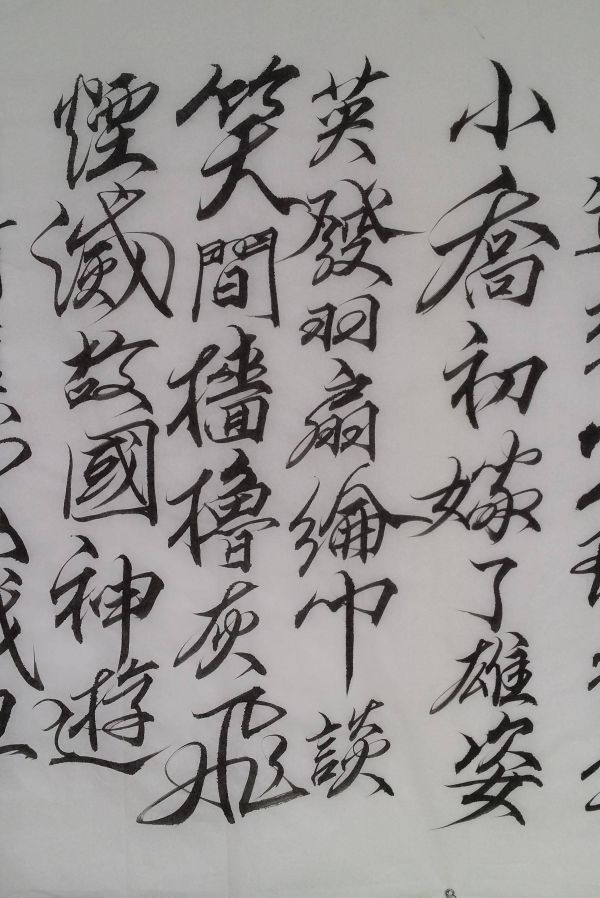 小喬初嫁了雄姿
英發羽扇綸巾談
笑間檣櫓灰飛
煙滅故國神遊